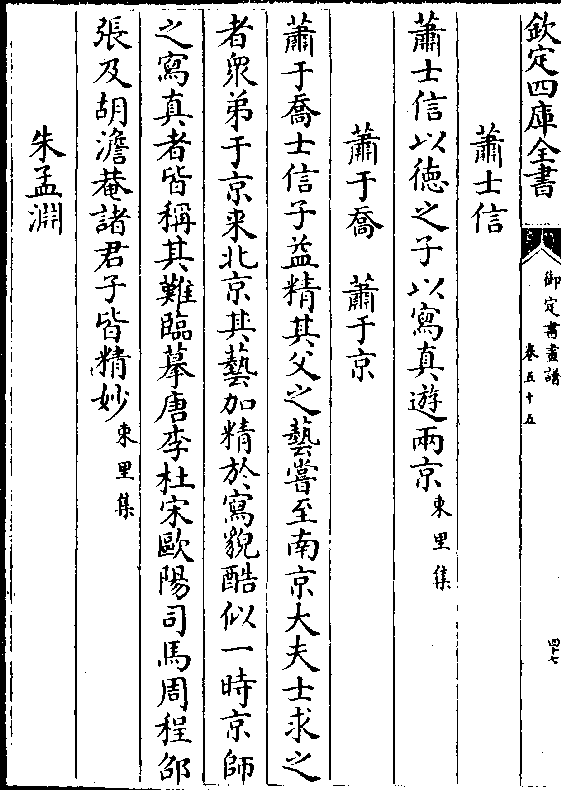 欽定四庫全書
御定書畫譜
卷五十五
四七
蕭士信
蕭士信以徳之子以寫真遊兩京東里集
蕭于喬　蕭于京
蕭于喬士信子益精其父之藝嘗至南京大夫士求之
者衆弟于京来北京其藝加精於寫貌酷似一時京師
之寫真者皆稱其難臨摹唐李杜宋歐陽司馬周程邵
張及胡澹菴諸君子皆精妙東里集
朱孟淵